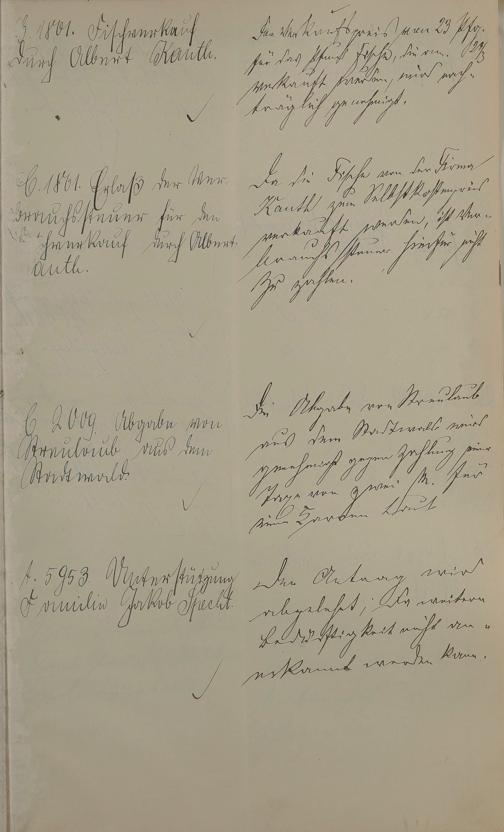 J. 1801. Fischverkauf
durch Albert Kauth.
Der Verkaufspreis von 23 Pfg.
für das Pfund Fische, die am
verkauft wurden, wird nach-
träglich genehmigt.
C. 1801. Erlaß der Ver-
brauchssteuer für den
Fischverkauf durch Albert
Kauth.
Da die Fische von der Firma
Kauth zum Selbstkostenpreis
verkauft werden, ist Ver-
brauchssteuer hierfür nicht
zu zahlen.
C 2009 Abgabe von
Streulaub aus dem
Stadtwald.
Die Abgabe von Streulaub
aus dem Stadtwald wird
genehmigt gegen Zahlung einer
Taxe von zwei M. für
einen Karren Laub
A. 5953 Unterstützung
Familie Jakob Specht.
Der Antrag wird
abgelehnt, da weitere
Bedürftigkeit nicht an-
erkannt werden kann.